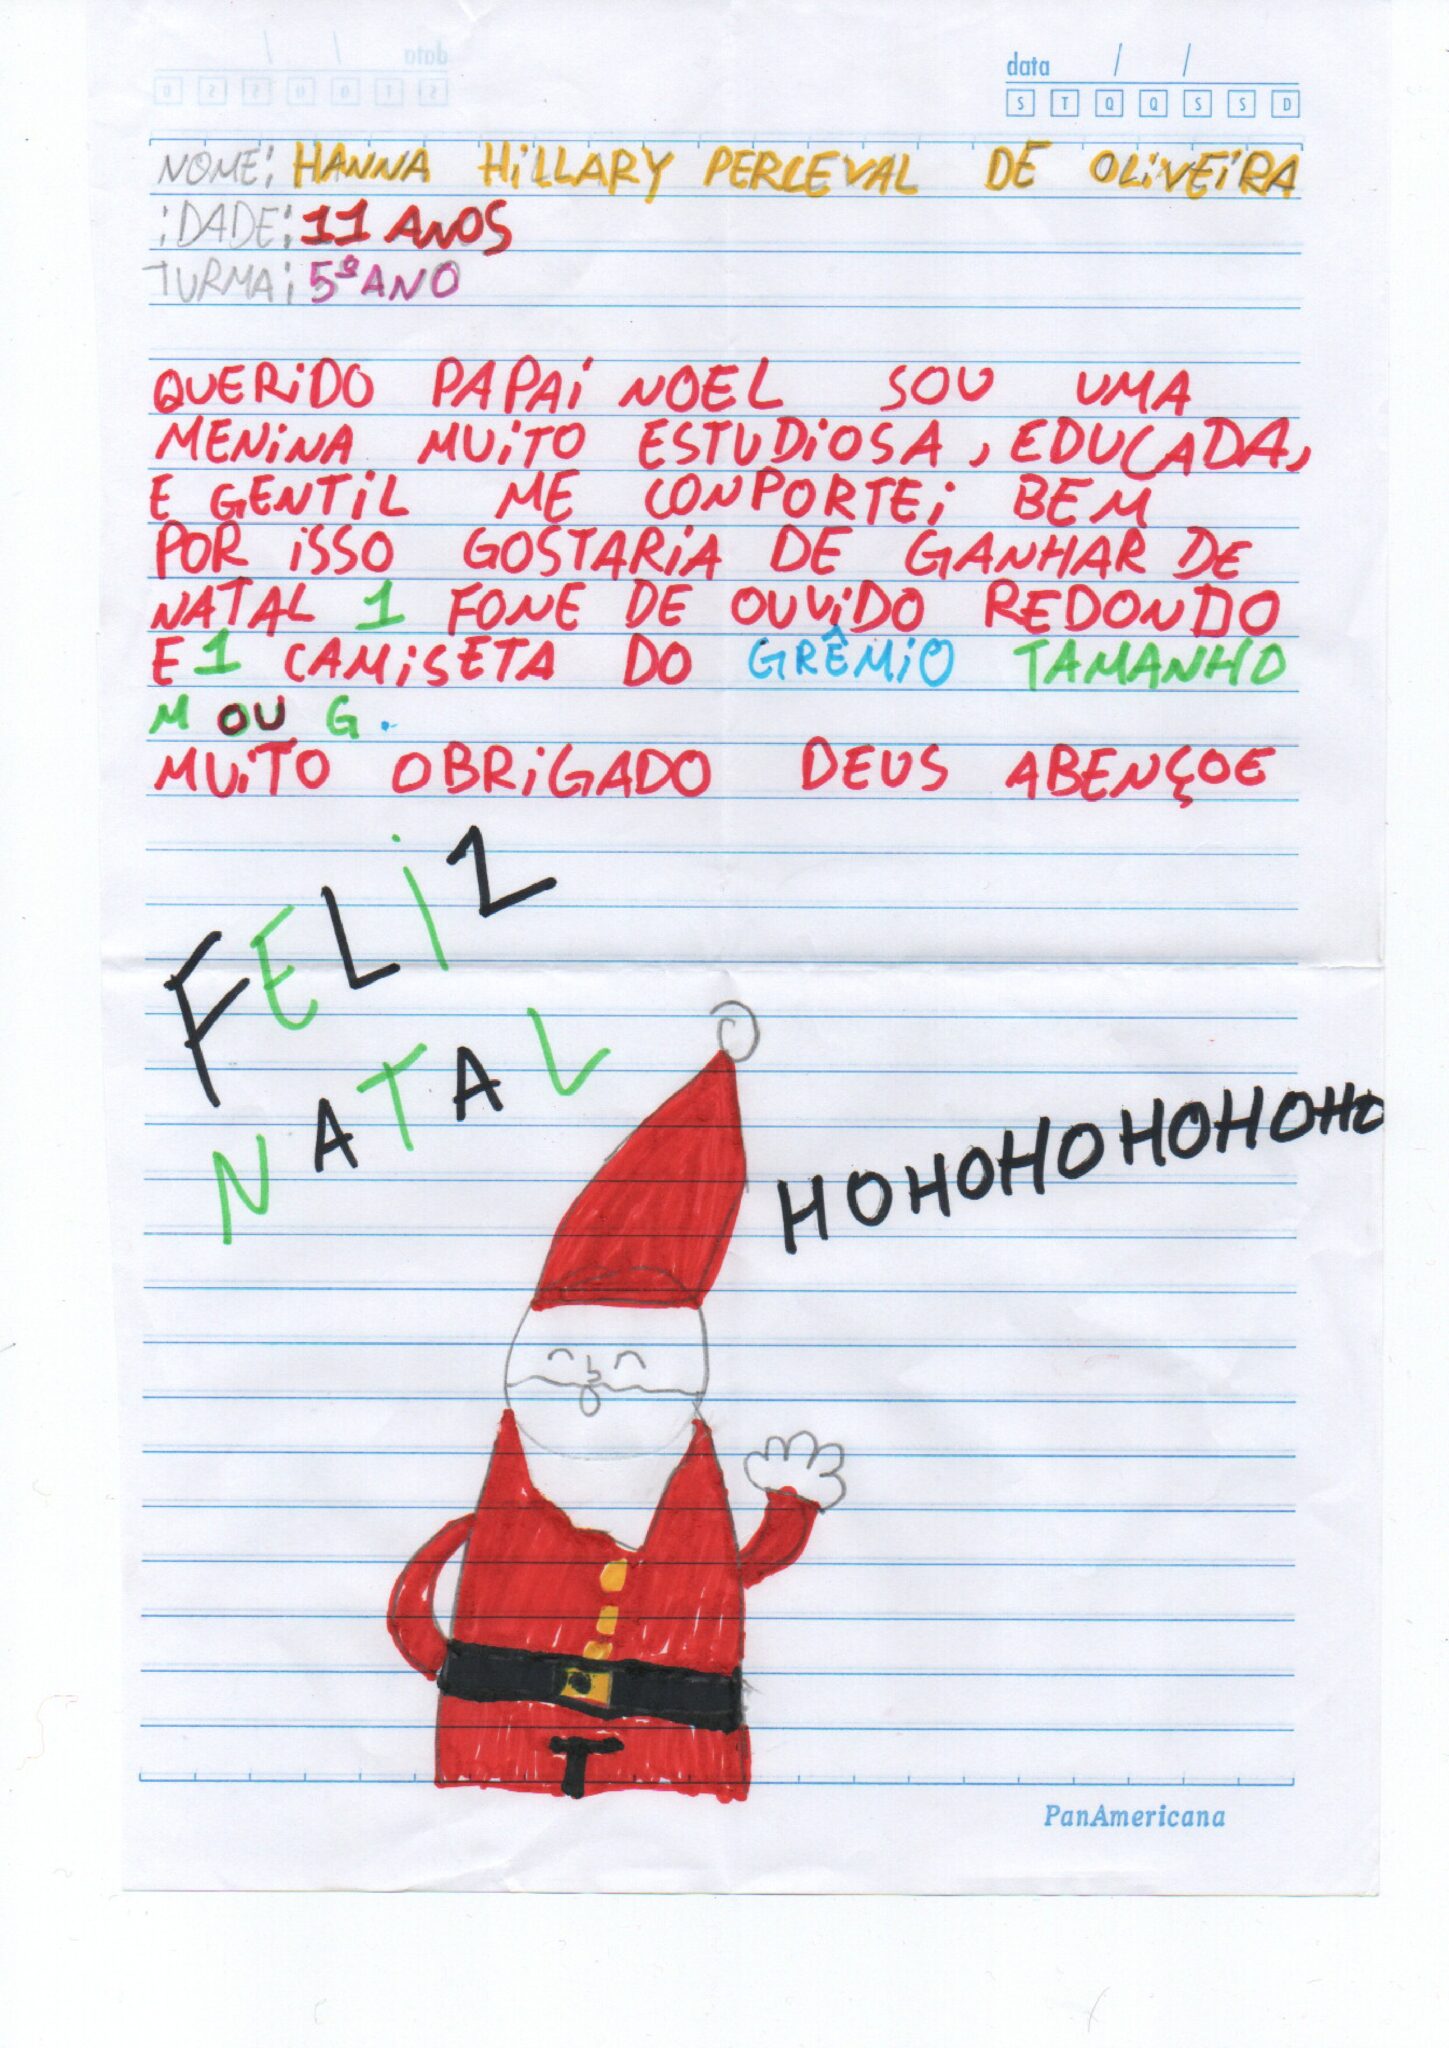 data / /
S T Q Q S S D
NOME: HANNA HILLARY PERCEVAL DE OLIVEIRA
IDADE: 11 ANOS
TURMA: 5º ANO
QUERIDO PAPAI NOEL SOU UMA
MENINA MUITO ESTUDIOSA, EDUCADA,
E GENTIL ME CONPORTEI BEM
POR ISSO GOSTARIA DE GANHAR DE
NATAL 1 FONE DE OUVIDO REDONDO
E 1 CAMISETA DO GRÊMIO TAMANHO
M OU G.
MUITO OBRIGADO DEUS ABENÇOE
FELIZ
NATAL
HOHOHOHOHOHO
T
PanAmericana